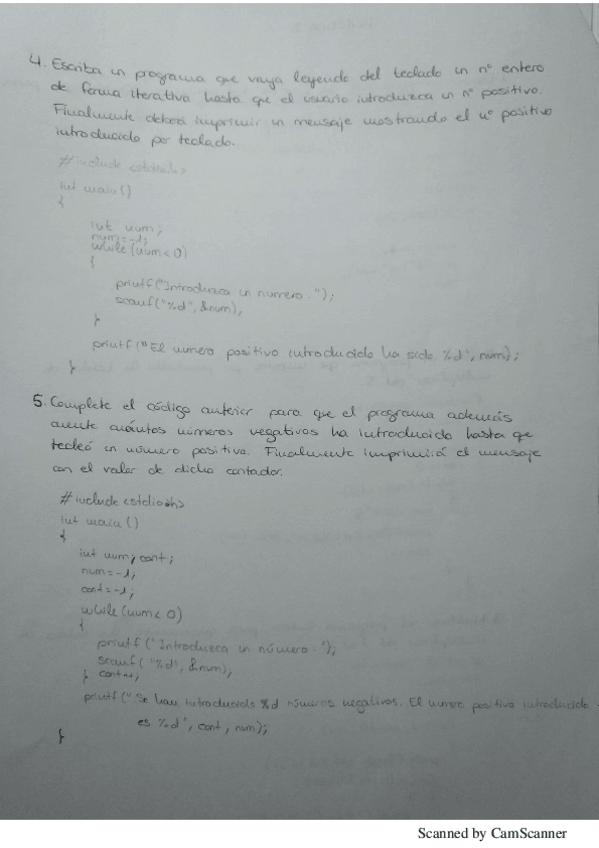 4. Escriba un programa que vaya leyendo del teclado un nº entero
de forma iterativa hasta que el usuario introduzca un nº positivo.
Finalmente deberá imprimir un mensaje mostrando el nº positivo
introducido por teclado.
#include <stdio.h>
int main()
{
int num;
num=-1;
while (num<0)
{
printf("Introduzca un numero: ");
scanf("%d", &num);
}
printf("El numero positivo introducido ha sido %d", num);
}
5. Complete el código anterior para que el programa además
cuente cuántos números negativos ha introducido hasta que
tecleó un número positivo. Finalmente imprimirá el mensaje
con el valor de dicho contador.
#include <stdio.h>
int main()
{
int num, cont;
num=-1;
cont=-1;
while (num<0)
{
printf("Introduzca un número: ");
scanf("%d", &num);
cont++;
}
printf("Se han introducido %d números negativos. El numero positivo introducido
es %d", cont, num);
}
Scanned by CamScanner